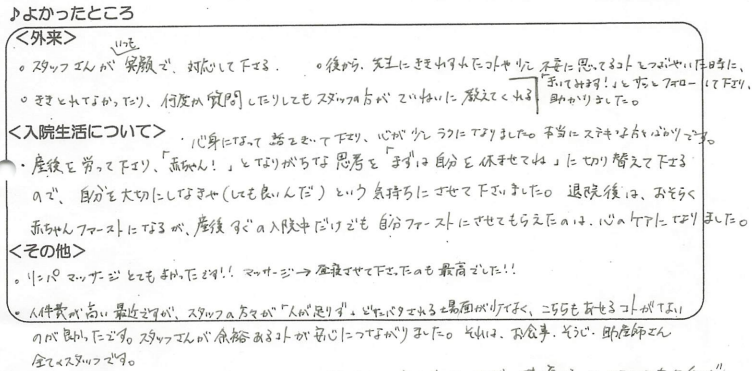 ♪よかったところ
<外来>
いつも
。スタッフさんが笑顔で、対応して下さる.
。後から、先生にききわすれたコトや少し不安に思ってるコトとつぶやいた時に、
「きいてみます!」とすっとフォローして下さり、
助かりました。
。ききとれてなかったり、何度か質問したりしてもスタッフの方がていねいに教えてくれる
<入院生活について>
・心身になって話をきいて下さり、心が少しラクになりました。本当にステキな方とばかりです。
・産後を労って下さり、「赤ちゃん!」となりがちな思考を「まずは自分を休ませてね」に切り替えて下さる
ので、自分を大切にしなきゃ(しても良いんだ)という気持ちにさせて下さいました。退院後は、おそらく
赤ちゃんファーストになるが、産後すぐの入院中だけでも自分ファーストにさせてもらえたのは、心のケアになりました。
<その他>
。リンパマッサージとてもよかったです!!マッサージ→昼寝させて下さったのも最高でした!!
・人件費が高い最近ですが、スタッフの方々が「人が足りず」どたバタされる場面が少なく、こちらもあせるコトがない
のが良かったです。スタッフさんが余裕あるコトが安心につながりました。それは、お食事、そうじ、助産師さん
全てのスタッフです。